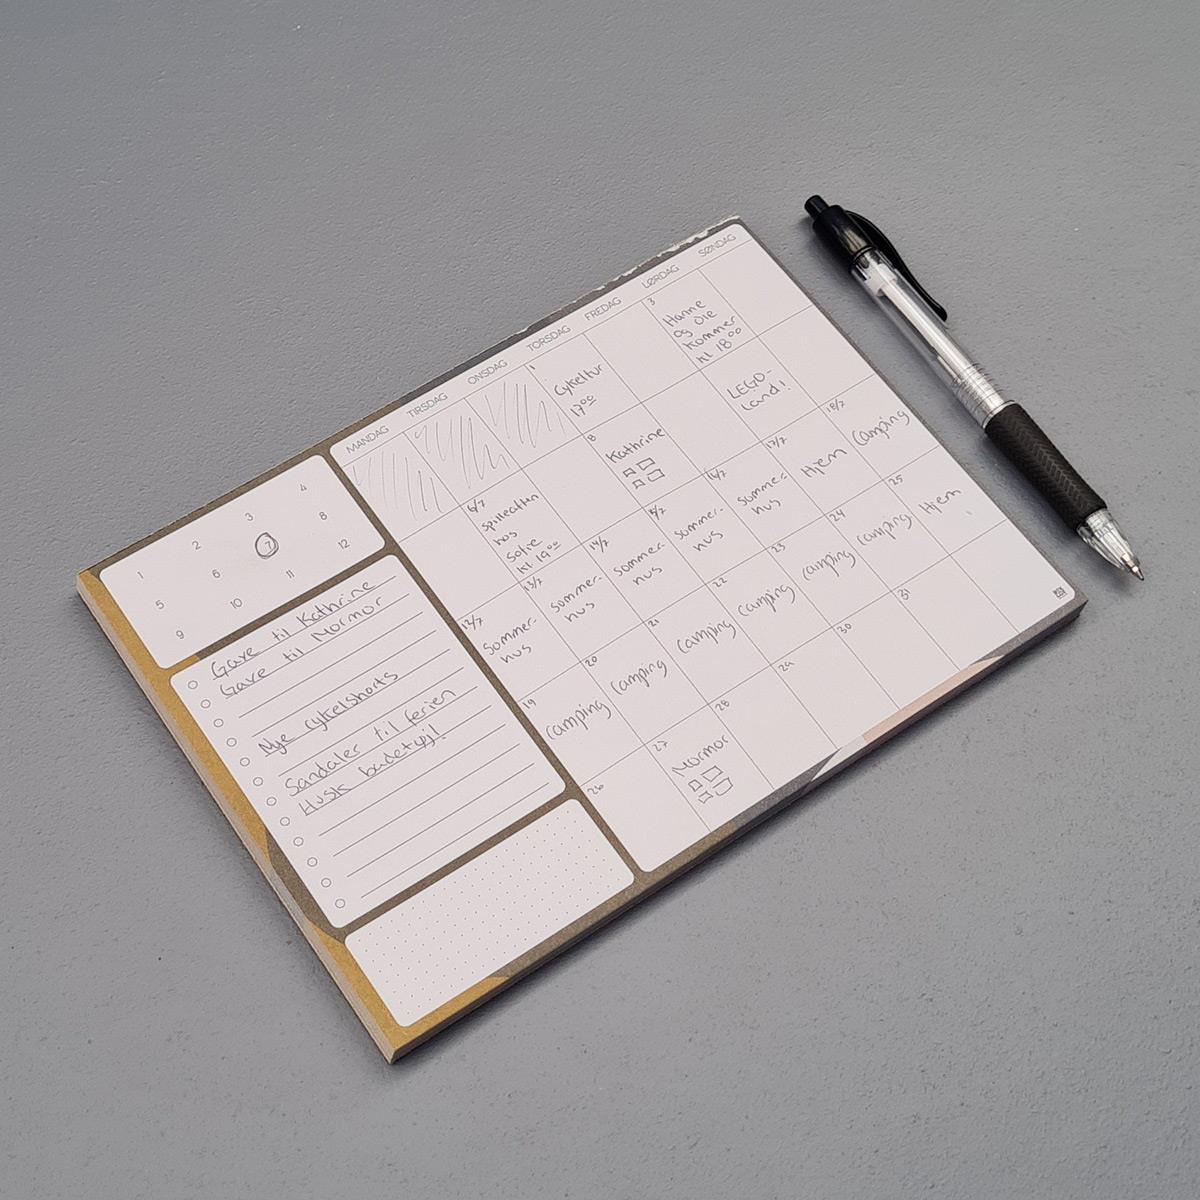 MANDAG TIRSDAG ONSDAG TORSDAG FREDAG LØRDAG SØNDAG
1
Cykeltur
17⁰⁰
3
Hanne
og Ole
kommer
kl 18⁰⁰
6/7
spilleaften
hos
Sofie
kl 19⁰⁰
8
Kathrine
LEGO-
Land!
12/7
Sommer-
hus
13/7
Sommer-
hus
14/7
Sommer-
hus
Sommer-
hus
16/7
Sommer-
hus
17/7
Hjem
18/7
Camping
19
Camping
20
Camping
21
Camping
22
Camping
23
Camping
24
Camping
25
Hjem
26
27
Mormor
28
29
30
31
1 2 3 4
5 6 7 8
9 10 11 12
Gave til Kathrine
Gave til Mormor
Nye cykelshorts
Sandaler til ferien
Husk badetøj!